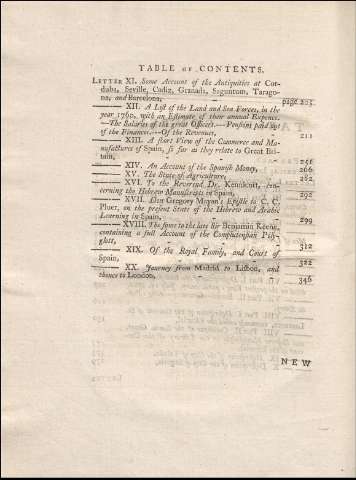 TABLE OF CONTENTS.
LETTER XI. Some Account of the Antiquities at Cor-
duba, Seville, Cadiz, Granada, Saguntum, Tarago-
na, and Barcelona, page 205
—— XII. A List of the Land and Sea Forces, in the
year 1760, with an Estimate of their annual Expence.
—The Salaries of the great Officers.—Pensions paid out
of the Finances.—Of the Revenues, 211
—— XIII. A short View of the Commerce and Ma-
nufactures of Spain, so far as they relate to Great Bri-
tain,
—— XIV. An Account of the Spanish Money, 266
—— XV. The State of Agriculture, 282
—— XVI. To the Reverend Dr. Kennicott, con-
cerning the Hebrew Manuscripts in Spain, 292
—— XVII. Don Gregory Mayan's Epistle to C. C.
Pluer, on the present State of the Hebrew and Arabic
Learning in Spain, 299
—— XVIII. The same to the late Sir Benjamin Keene,
containing a full Account of the Complutensian Poly-
glott, 312
—— XIX. Of the Royal Family, and Court of
Spain, 322
—— XX. Journey from Madrid to Lisbon, and
thence to London, 346
NEW